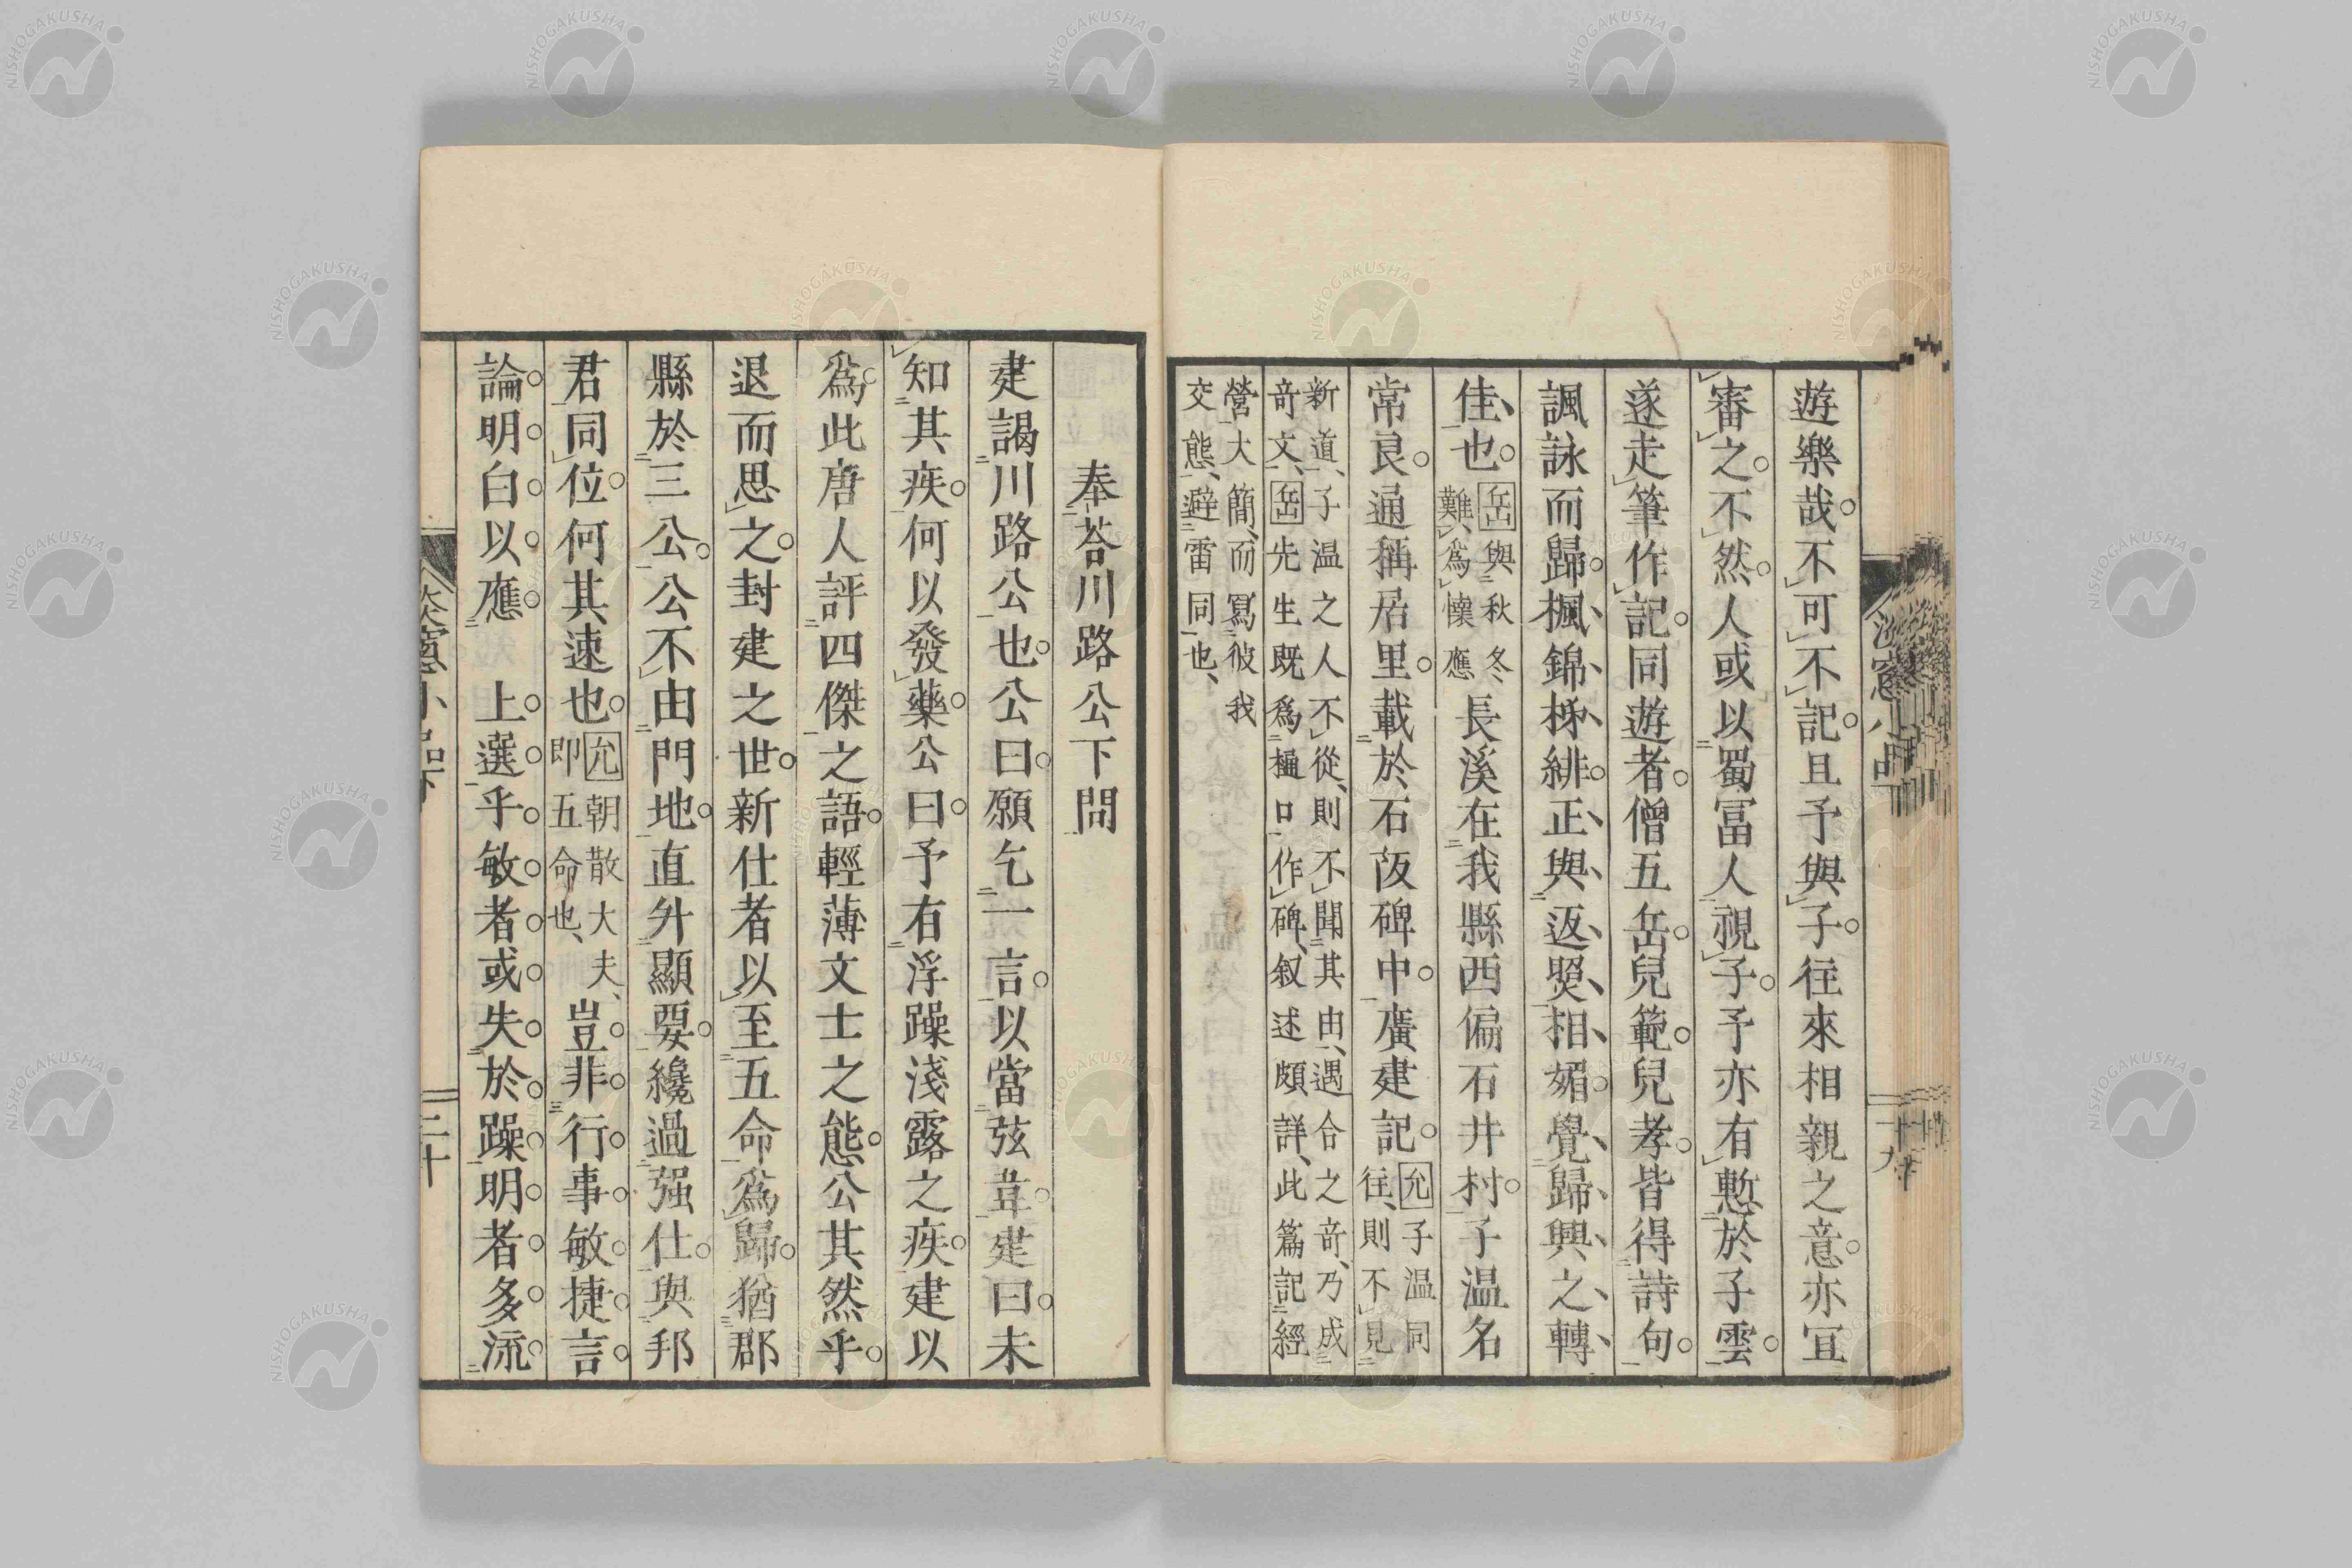 遊樂哉不可不記且予與子往來相親之意亦宜
審之不然人或以蜀冨人視子予亦有慙於子雲
遂走筆作記同遊者僧五岳兒範兒孝皆得詩句
諷詠而歸楓錦梯緋正與返照相媚覺歸興之轉
佳也
岳與秋冬
難爲懷應
長溪在我縣西偏石井村子温名
常良通稱居里載於石阪碑中廣建記
允子温同
往則不見
新道子温之人不從則不聞其由遇合之奇乃成
奇文岳先生既爲樋口作碑叙述頗詳此篇記經
營大簡而冩彼我
交態避雷同也
二十九
奉荅川路公下問
建謁川路公也公曰願乞一言以當弦韋建曰未
知其疾何以發藥公曰予有浮躁淺露之疾建以
爲此唐人評四傑之語輕薄文士之態公其然乎
退而思之封建之世新仕者以至五命爲歸猶郡
縣於三公公不由門地直升顯要纔過强仕與邦
君同位何其速也
允朝散大夫
即五命也
豈非行事敏捷言
論明白以應 上選乎敏者或失於躁明者多流
窻小品下
三十
NISHOGAKUSHA